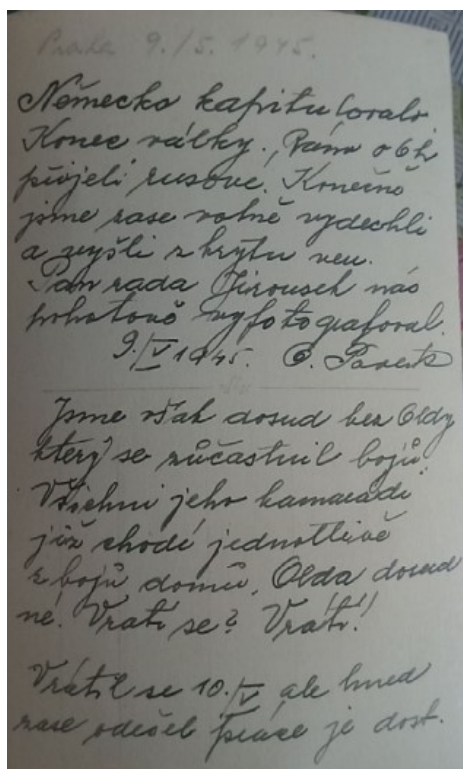 Praha 9./5. 1945.
Německo kapitulovalo.
Konec války. Ráno o 6 h
přijeli rusové. Konečně
jsme zase volně vydechli
a vyšli z krytu ven.
Pan rada Jirousek nás
pohotově vyfotografoval.
9./V 1945. O.
Jsme však dosud bez Oldy
který se zůčastnil bojů.
Všichni jeho kamarádi
již chodí jednotlivě
z bojů domů, Olda dosud
ne. Vrátí se? Vrátí!
Vrátil se 10./V ale hned
zase odešel práce je dost.